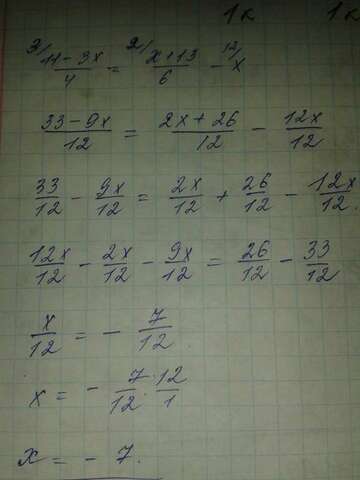 1к 1к
3/ (11 - 3x)/4 = 2/ (x + 13)/6 - 12/ x
(33 - 9x)/12 = (2x + 26)/12 - 12x/12
33/12 - 9x/12 = 2x/12 + 26/12 - 12x/12.
12x/12 - 2x/12 - 9x/12 = 26/12 - 33/12
x/12 = - 7/12.
x = - 7/12 · 12/1
x = - 7.